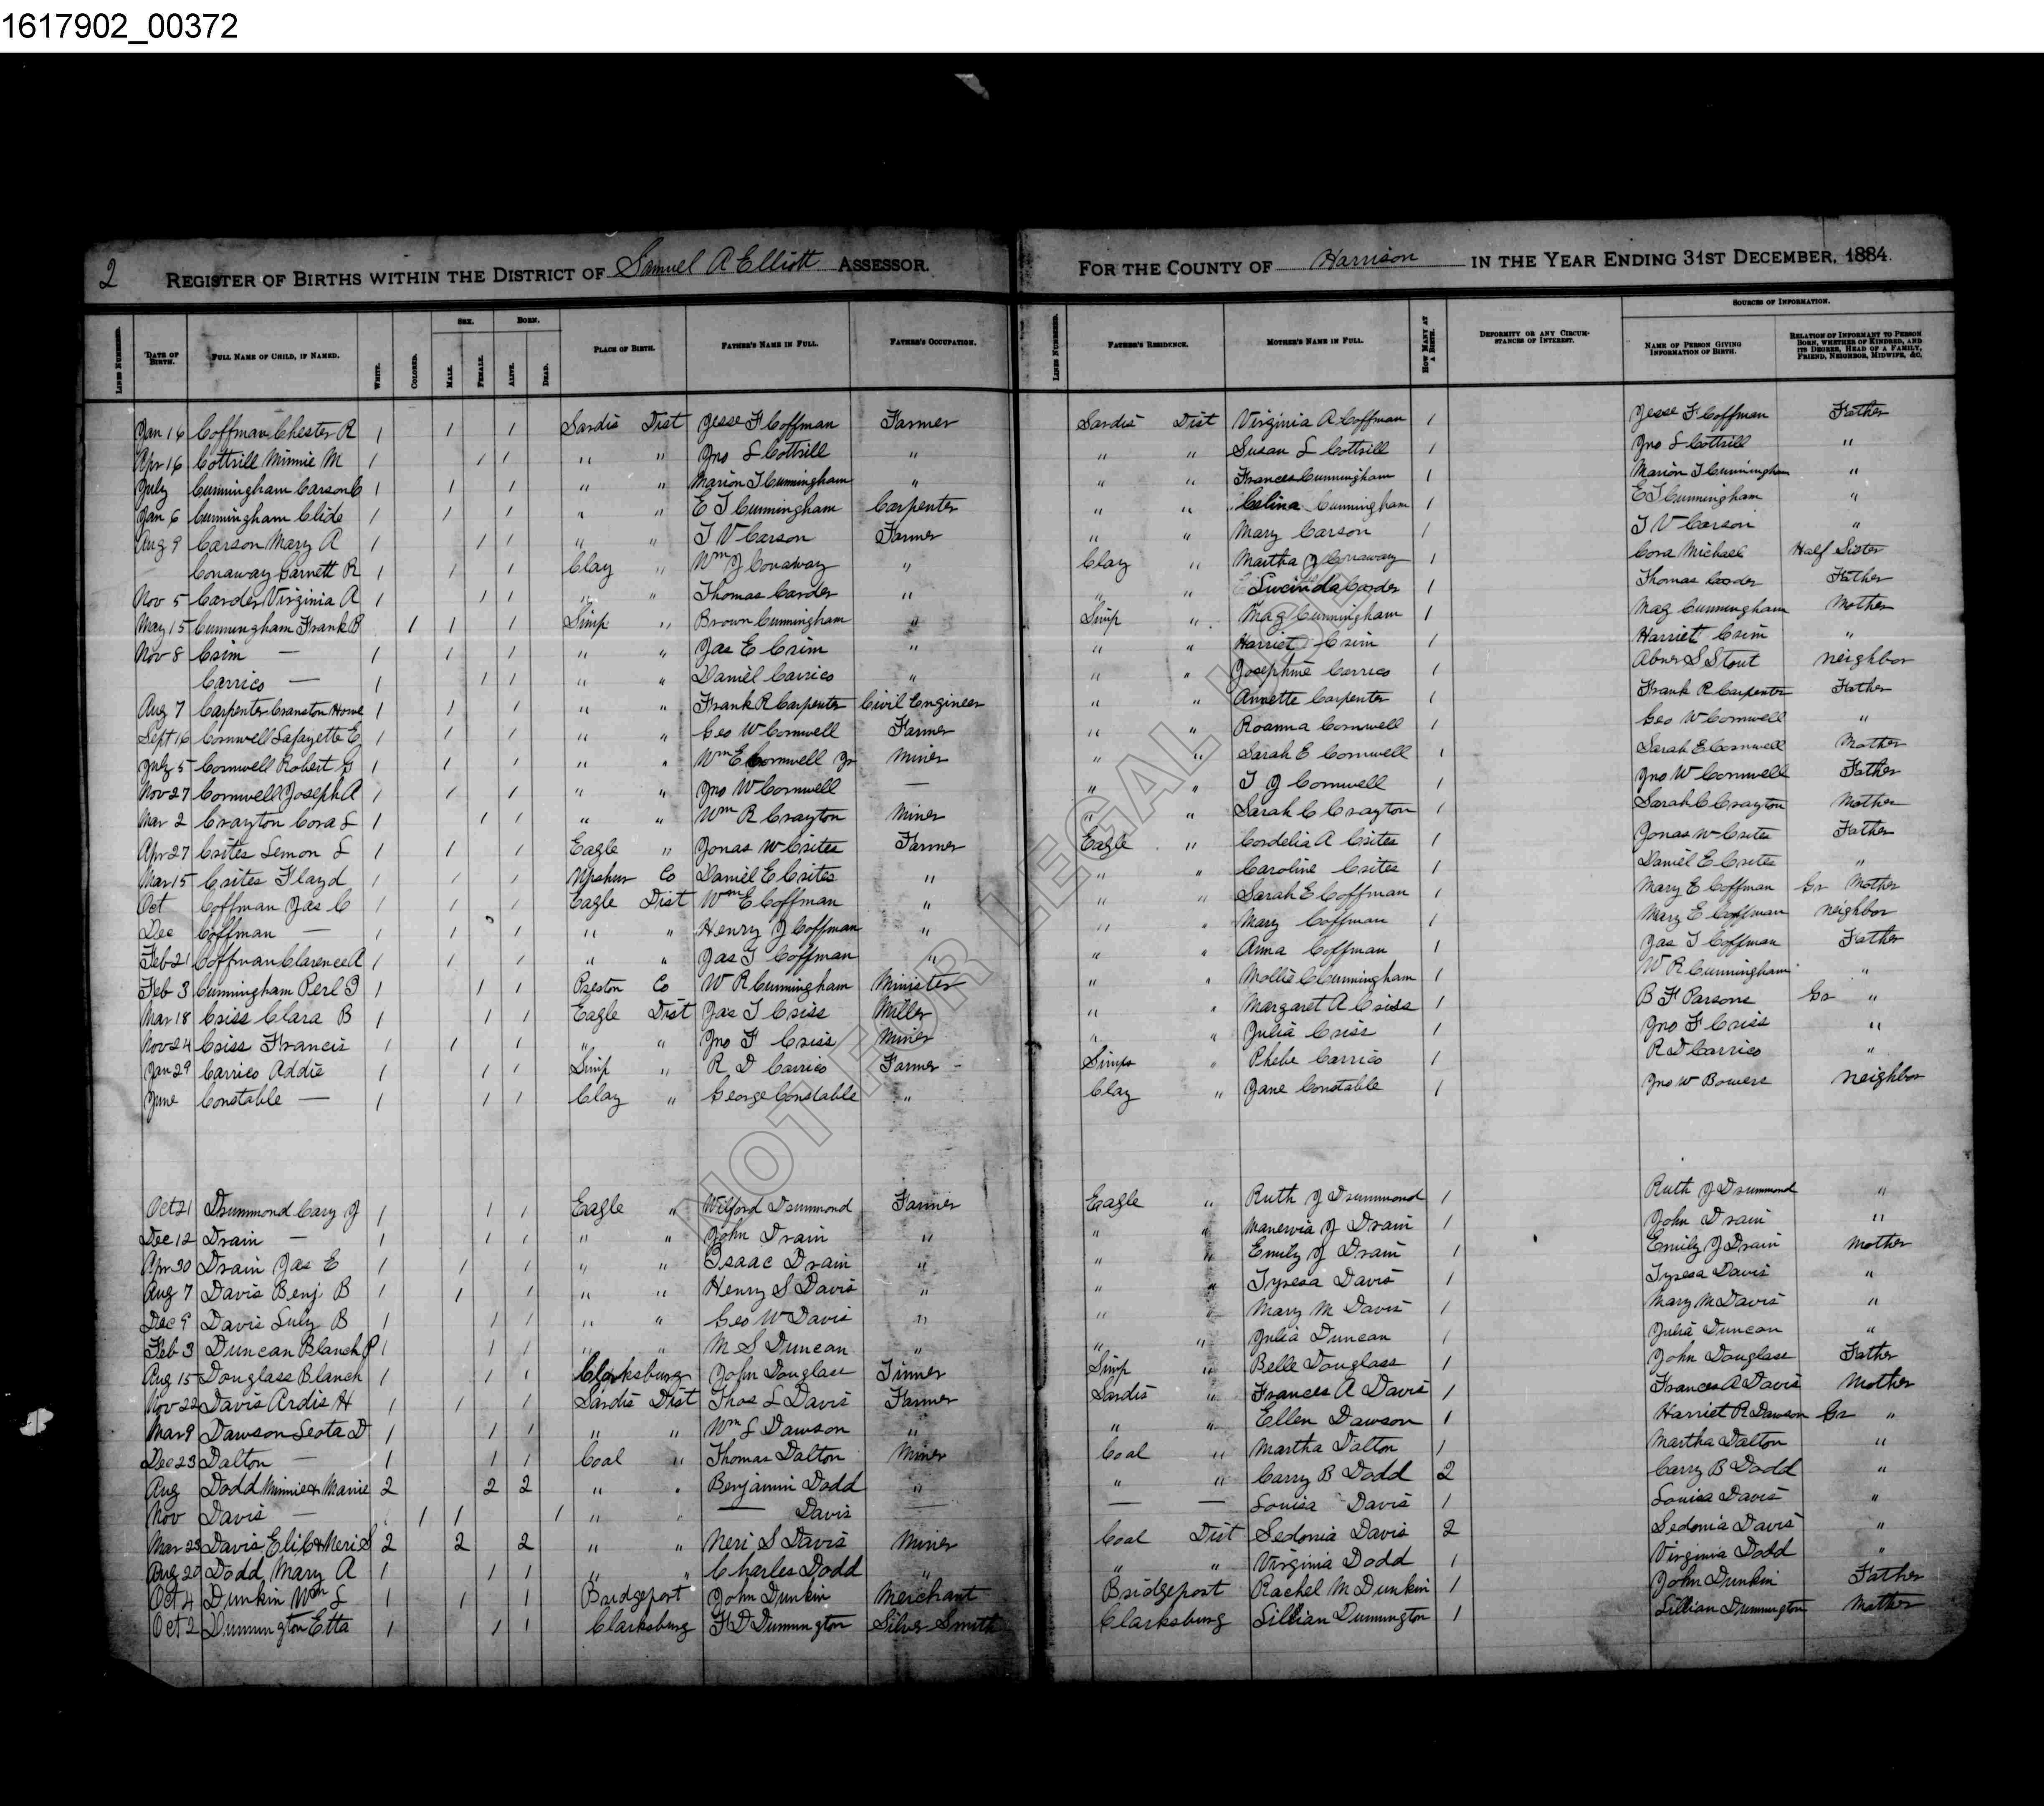 1617902_00372
2 REGISTER OF BIRTHS WITHIN THE DISTRICT OF Samuel A Elliott ASSESSOR. FOR THE COUNTY OF Harrison IN THE YEAR ENDING 31ST DECEMBER, 1884.
SEX. BORN. SOURCES OF INFORMATION.
LINES NUMBERED. DATE OF BIRTH. FULL NAME OF CHILD, IF NAMED. WHITE. COLORED. MALE. FEMALE. ALIVE. DEAD. PLACE OF BIRTH. FATHER'S NAME IN FULL. FATHER'S OCCUPATION. LINES NUMBERED. FATHER'S RESIDENCE. MOTHER'S NAME IN FULL. HOW MANY AT A BIRTH. DEFORMITY OR ANY CIRCUMSTANCES OF INTEREST. NAME OF PERSON GIVING INFORMATION OF BIRTH. RELATION OF INFORMANT TO PERSON BORN, WHETHER OF KINDRED, AND ITS DEGREE, HEAD OF A FAMILY, FRIEND, NEIGHBOR, MIDWIFE, &C.
Jan 16 Coffman Chester R 1 1 1 Sardis Dist Jesse F Coffman Farmer Sardis Dist Virginia A Coffman 1 Jesse F Coffman Father
Apr 16 Cottrill Minnie M 1 1 1 " " Jno L Cottrill " " " Susan L Cottrill 1 Jno L Cottrill "
July Cunningham Carson C 1 1 1 " " Marion T Cunningham " " " Frances Cunningham 1 Marion T Cunningham "
Jan 6 Cunningham Clide 1 1 1 " " E T Cunningham Carpenter " " Celina Cunningham 1 E T Cunningham "
Aug 9 Carson Mary A 1 1 1 " " T V Carson Farmer " " Mary Carson 1 T V Carson "
Conaway Garnett R 1 1 1 Clay " Wm J Conaway " Clay " Martha J Conaway 1 Cora Michael Half Sister
Nov 5 Carder Virginia A 1 1 1 " " Thomas Carder " " " Lucinda Carder 1 Thomas Carder Father
May 15 Cunningham Frank B 1 1 1 Simp " Brown Cunningham " Simp " Mag Cunningham 1 Mag Cunningham Mother
Nov 8 Crim — 1 1 1 " " Jas E Crim " " " Harriet Crim 1 Harriet Crim "
Carrico — 1 1 1 " " Daniel Carrico " " " Josephine Carrico 1 Abner S Stout neighbor
Aug 7 Carpenter Cranston Howe 1 1 1 " " Frank R Carpenter Civil Engineer " " Annette Carpenter 1 Frank R Carpenter Father
Sept 16 Cornwell Lafayette E 1 1 1 " " Geo W Cornwell Farmer " " Roanna Cornwell 1 Geo W Cornwell "
July 5 Cornwell Robert G 1 1 1 " " Wm E Cornwell Jr Miner " " Sarah E Cornwell 1 Sarah E Cornwell Mother
Nov 27 Cornwell Joseph A 1 1 1 " " Jno W Cornwell — " " T J Cornwell 1 Jno W Cornwell Father
Mar 2 Crayton Cora L 1 1 1 " " Wm R Crayton Miner " " Sarah C Crayton 1 Sarah C Crayton Mother
Apr 27 Crites Lemon L 1 1 1 Eagle " Jonas W Crites Farmer Eagle " Cordelia A Crites 1 Jonas W Crites Father
Mar 15 Crites Floyd 1 1 1 Upshur Co Daniel E Crites " " " Caroline Crites 1 Daniel E Crites "
Oct Coffman Jas C 1 1 1 Eagle Dist Wm E Coffman " " " Sarah E Coffman 1 Mary E Coffman Gr Mother
Dec Coffman — 1 1 1 " " Henry J Coffman " " " Mary Coffman 1 Mary E Coffman neighbor
Feb 21 Coffman Clarence A 1 1 1 " " Jas T Coffman " " " Anna Coffman 1 Jas T Coffman Father
Feb 3 Cunningham Perl 1 1 1 Preston Co W R Cunningham Minister " " Mollie C Cunningham 1 W R Cunningham "
Mar 18 Criss Clara B 1 1 1 Eagle Dist Jas T Criss Miller " " Margaret A Criss 1 B F Parsons Gr "
Nov 24 Criss Francis 1 1 1 " " Jno F Criss Miner " " Julia Criss 1 Jno F Criss "
Jan 29 Carrico Addie 1 1 1 Simp " R D Carrico Farmer Simp " Phebe Carrico 1 R D Carrico "
June Constable — 1 1 1 Clay " George Constable " Clay " Jane Constable 1 Jno W Bowers neighbor
Oct 21 Drummond Cary J 1 1 1 Eagle " Wilford Drummond Farmer Eagle " Ruth J Drummond 1 Ruth J Drummond "
Dec 12 Drain — 1 1 1 " " John Drain " " " Manervia J Drain 1 John Drain "
Apr 20 Drain Jas E 1 1 1 " " Isaac Drain " " " Emily J Drain 1 Emily J Drain Mother
Aug 7 Davis Benj B 1 1 1 " " Henry S Davis " " " Tyresa Davis 1 Tyresa Davis "
Dec 9 Davis Luly B 1 1 1 " " Geo W Davis " " " Mary M Davis 1 Mary M Davis "
Feb 3 Duncan Blanch P 1 1 1 " " M S Duncan " " " Julia Duncan 1 Julia Duncan "
Aug 15 Douglass Blanch 1 1 1 Clarksburg John Douglass Tinner Simp " Belle Douglass 1 John Douglass Father
Nov 22 Davis Ardis H 1 1 1 Sardis Dist Thos L Davis Farmer Sardis " Frances A Davis 1 Frances A Davis Mother
Mar 9 Dawson Leota D 1 1 1 " " Wm L Dawson " " " Ellen Dawson 1 Harriet R Dawson Gr "
Dec 23 Dalton — 1 1 1 Coal " Thomas Dalton Miner Coal " Martha Dalton 1 Martha Dalton "
Aug Dodd Minnie & Mamie 2 2 2 " " Benjamin Dodd " " " Carry B Dodd 2 Carry B Dodd "
Nov Davis — 1 1 1 " " — Davis — — — Louisa Davis 1 Louisa Davis "
Mar 23 Davis Eli C & Neri S 2 2 2 " " Neri S Davis Miner Coal Dist Sedonia Davis 2 Sedonia Davis "
Aug 20 Dodd, Mary A 1 1 1 " " Charles Dodd " " " Virginia Dodd 1 Virginia Dodd "
Oct 4 Dunkin Wm L 1 1 1 Bridgeport John Dunkin Merchant Bridgeport Rachel M Dunkin 1 John Dunkin Father
Oct 2 Dunnington Etta 1 1 1 Clarksburg F D Dunnington Silver Smith Clarksburg Lillian Dunnington 1 Lillian Dunnington Mother
NOT FOR LEGAL USE